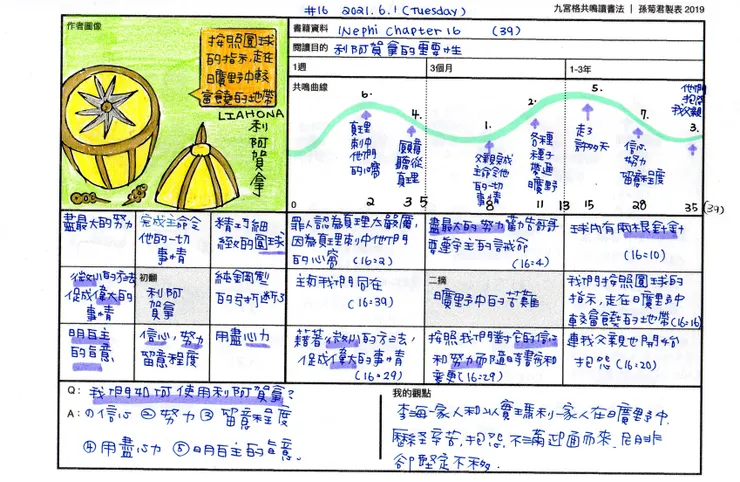 #16 2021.6.1 (Tuesday)
九宮格共鳴讀書法 | 孫菊君製表 2019
作者圖像
書籍資料 1Nephi Chapter 16 (39)
閱讀目的 利阿賀拿的重要性
1週 3個月 1-3年
共鳴曲線
按照圓球
的指示,走在
曠野中較
富饒的地帶
LIAHONA
利
阿
賀
拿
6.
真理
刺中
他們
的心窩
4.
願意
聽從
真理
1.
父親完成
主命令他
的一切
事情
2.
各種
種子
帶過
曠野
5.
走了
許多天
7.
信心
努力
留意程度
他們
抱怨
我父親
3.
0 2 3 5 8 11 13 15 20 35 (39)
盡最大的努力
完成主命令
他的一切
事情
精巧細
緻的圓球
罪人認為真理太嚴厲,
因為真理刺中他們
的心窩 (16:2)
盡最大的努力勸告哥哥
要遵守主的誡命
(16:4)
球內有兩根指針
(16:10)
微小的方法
促成偉大的
事情
初翻
利阿
賀拿
純鋼製
的弓折斷了
主與我們同在
(16:39)
二摘
曠野中的苦難
我們按照圓球的
指示,走在曠野中
較富饒的地帶(16:16)
明白主
的旨意
信心,努力
留意程度
用盡心力
藉著微小的方法,
促成偉大的事情
(16:29)
按照我們對它的信心
和努力而隨時書寫和
變更(16:29)
連我父親也開始
抱怨 (16:20)
Q: 我們如何使用利阿賀拿?
A: ①信心 ②努力 ③留意程度
④用盡心力 ⑤明白主的旨意.
我的觀點
李海家人和以實瑪利家人在曠野中,
歷經辛苦,抱怨、不滿迎面而來,尼腓
卻堅定不移.